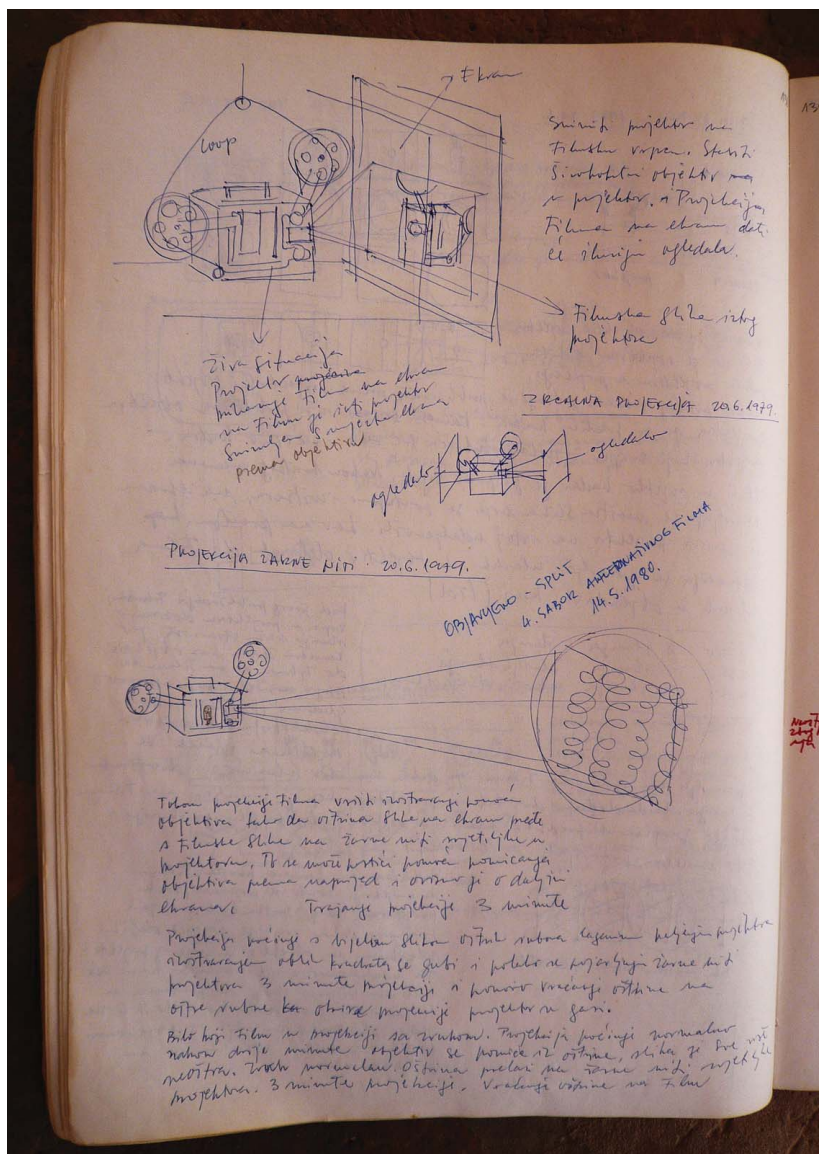 Ekran
loop
Snimiti projektor na
filmsku vrpcu. Staviti
širokokutni objektiv na
u projektor. Projekcija
Filma na ekran dati
će iluziju ogledala.
Filmska slika istog
projektora
Živa situacija
Projektor
prikazuje Film na ekran
na Filmu je isti projektor
Snimljen s mjesta ekrana
prema objektivu
ZRCALNA PROJEKCIJA 20.6.1979.
ogledalo
ogledalo
PROJEKCIJA ŽARNE NITI 20.6.1979.
OBJAVLJENO - SPLIT
4. SABOR ALTERNATIVNOG FILMA
14.5.1980.
Tokom projekcije Filma vršiti izoštravanje pomoću
objektiva tako da oštrina slike na ekranu pređe
s Filmske slike na žarne niti svjetiljke u
projektoru. To se može postići pomoću pomicanja
objektiva prema naprijed i ovisno je o daljini
ekrana. Trajanje projekcije 3 minute
Projekcija počinje s bijelom slikom oštrih rubova laganim
izoštravanjem oblik kvadrata se gubi i polako se pojavljuju žarne niti
projektora 3 minute projekcije i ponovo vraćanje oštrine na
oštre rubove projekcije projektor se gasi.
Bilo koji Film u projekciji sa zvukom. Projekcija počinje normalno
nakon dvije minute objektiv se pomiče iz oštrine, slika je sve više
neoštra. Zvuk normalan. Oštrina prelazi na žarne niti svjetiljke
projektora. 3 minute projekcije. Vraćanje oštrine na Film